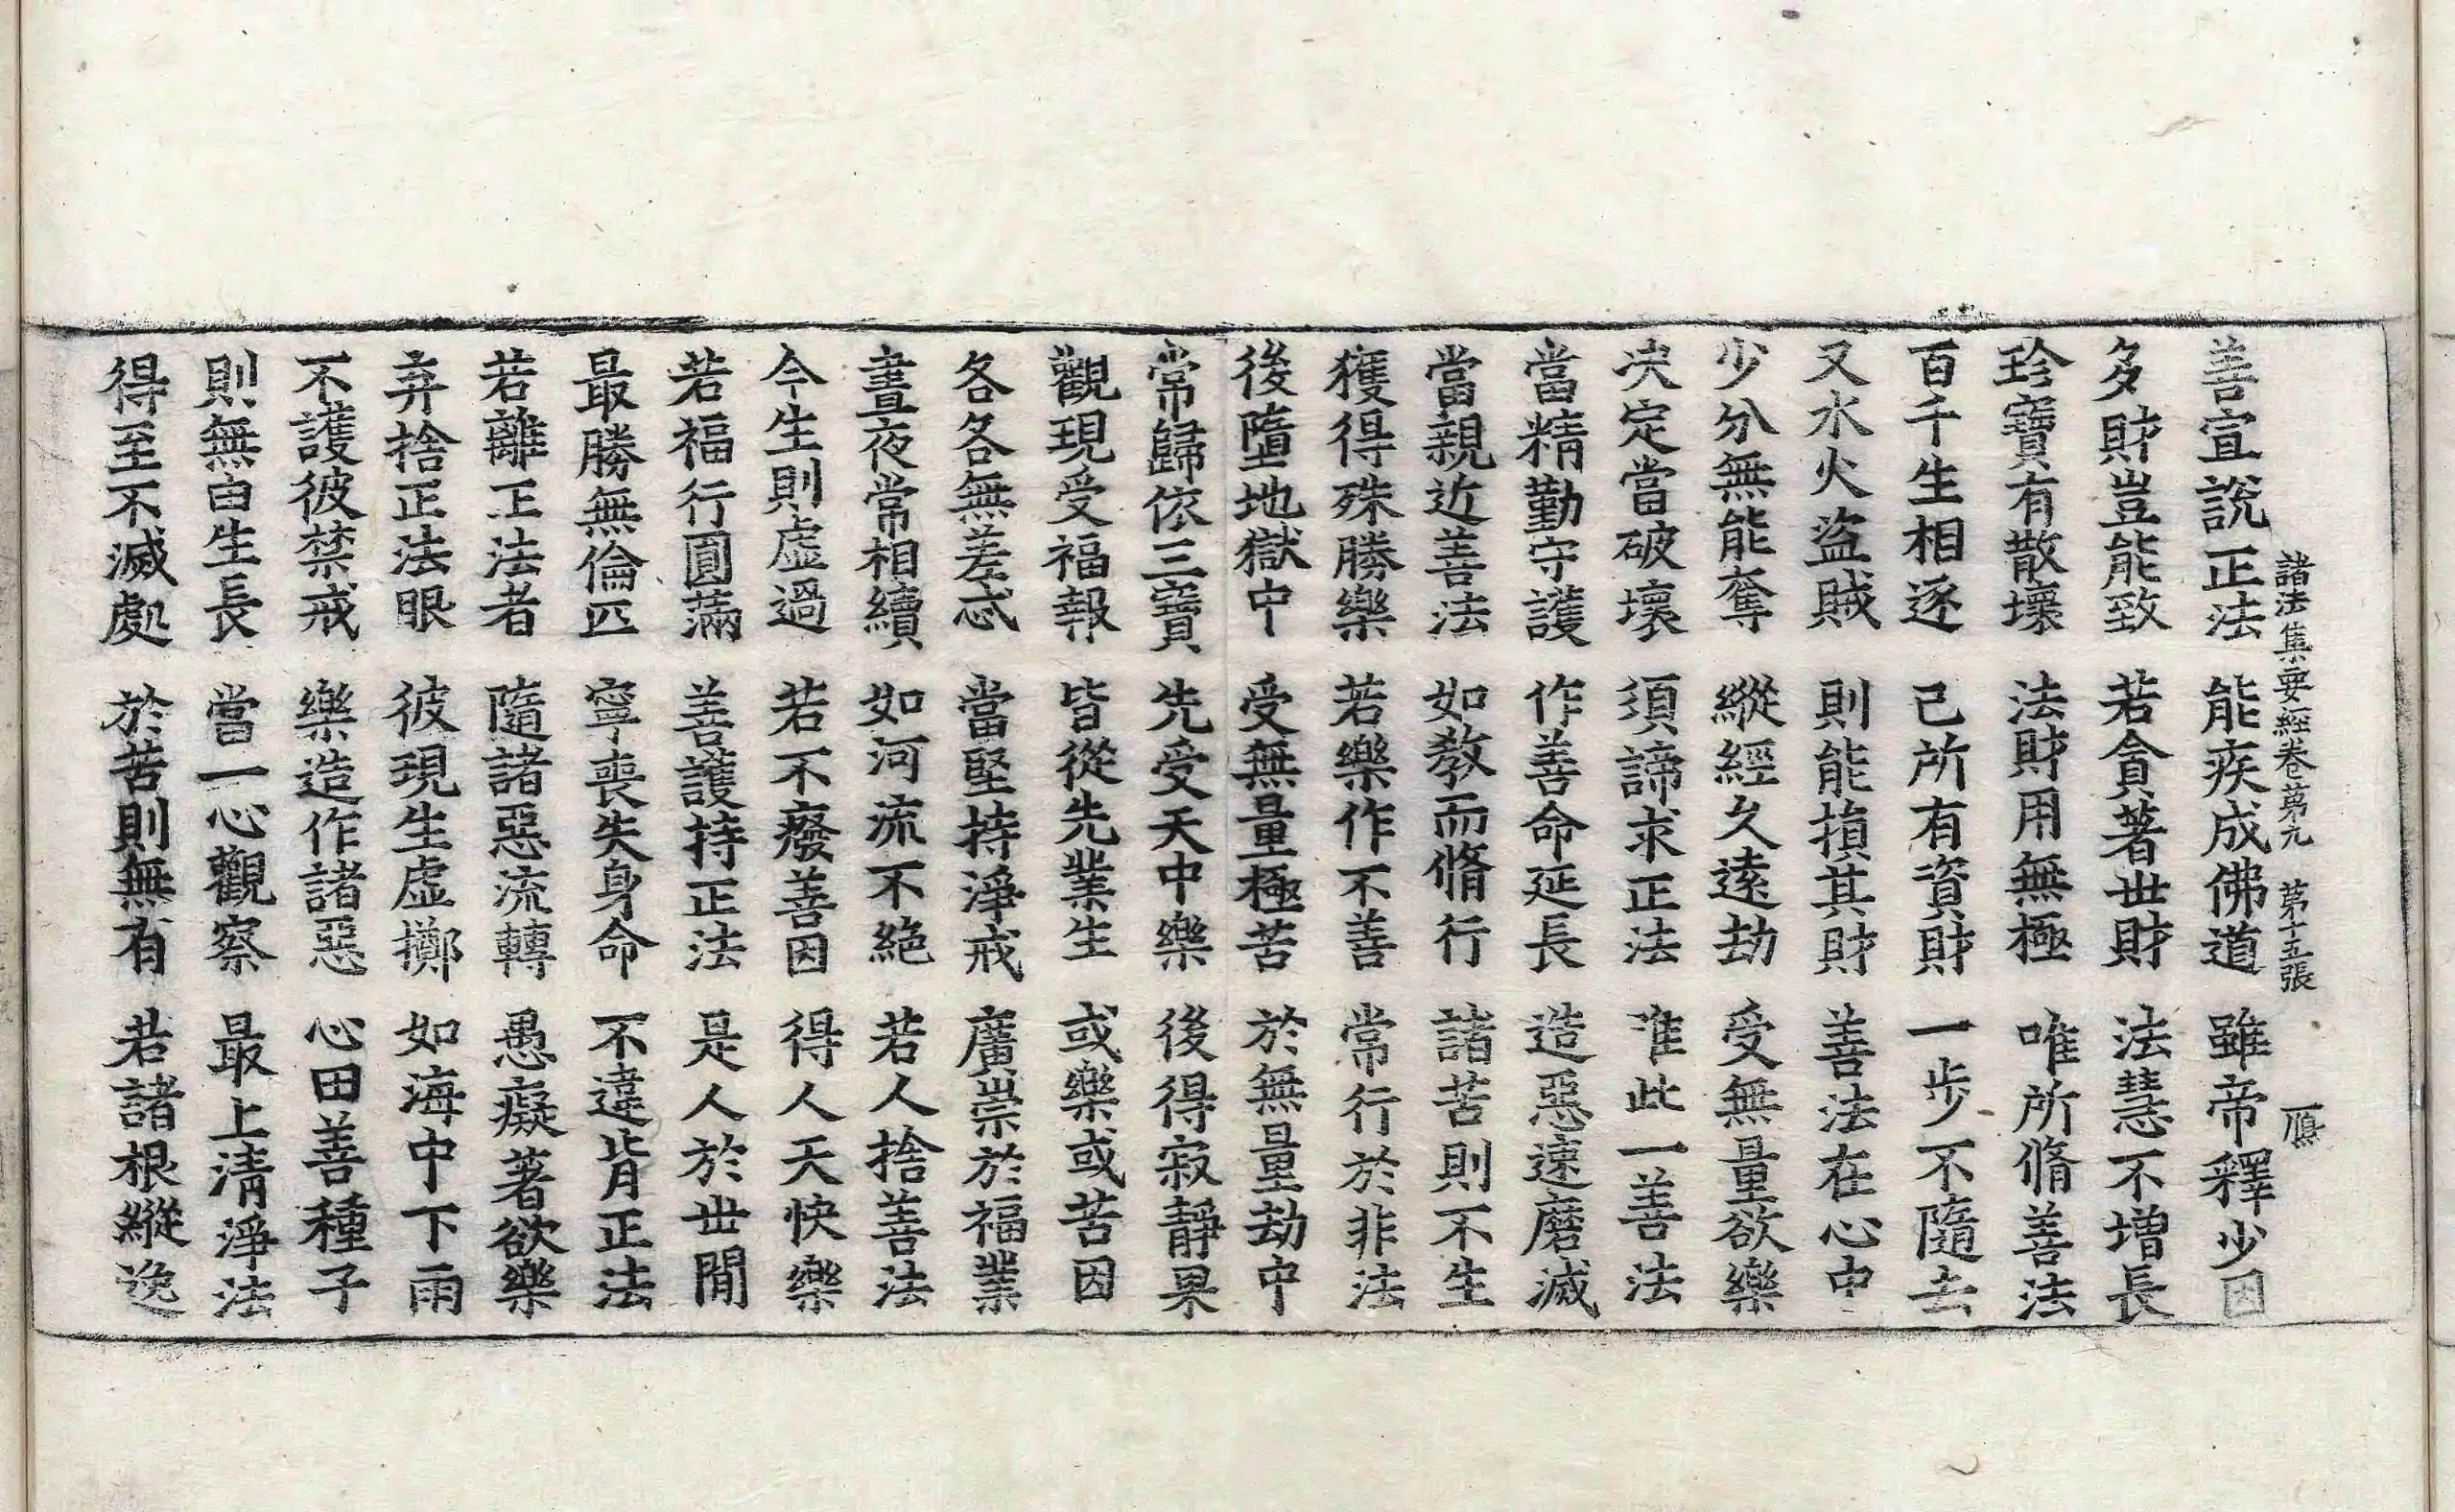 諸法集要經卷第九　第十五張　鴈
善宜說正法　能疾成佛道　雖帝釋少因
多財豈能致　若貪著世財　法慧不增長
珍寶有散壞　法財用無極　唯所脩善法
百千生相逐　己所有資財　一步不隨去
又水火盜賊　則能損其財　善法在心中
少分無能奪　縱經久遠劫　受無量欲樂
决定當破壞　須諦求正法　唯此一善法
當精勤守護　作善命延長　造惡速磨滅
當親近善法　如教而脩行　諸苦則不生
獲得殊勝樂　若樂作不善　常行於非法
後墮地獄中　受無量極苦　於無量劫中
常歸依三寶　先受天中樂　後得寂靜果
觀現受福報　皆從先業生　或樂或苦因
各各無差忒　當堅持淨戒　廣崇於福業
晝夜常相續　如河流不絕　若人捨善法
今生則虛過　若不癈善因　得人天快樂
若福行圓滿　善護持正法　是人於世間
最勝無倫匹　寧喪失身命　不違背正法
若離正法者　隨諸惡流轉　愚癡著欲樂
弃捨正法眼　彼現生虛擲　如海中下雨
不護彼禁戒　樂造作諸惡　心田善種子
則無由生長　當一心觀察　最上清淨法
得至不滅處　於苦則無有　若諸根縱逸